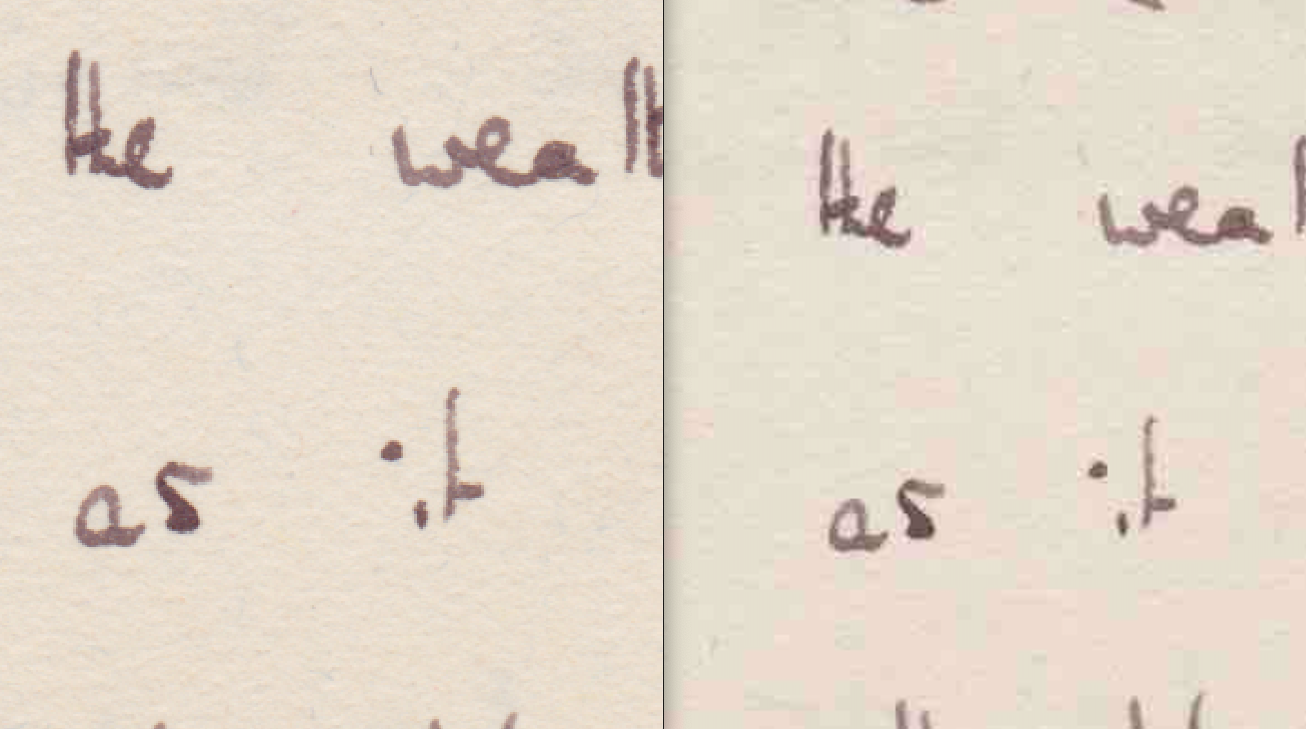 the wea
as it
the wea
as it